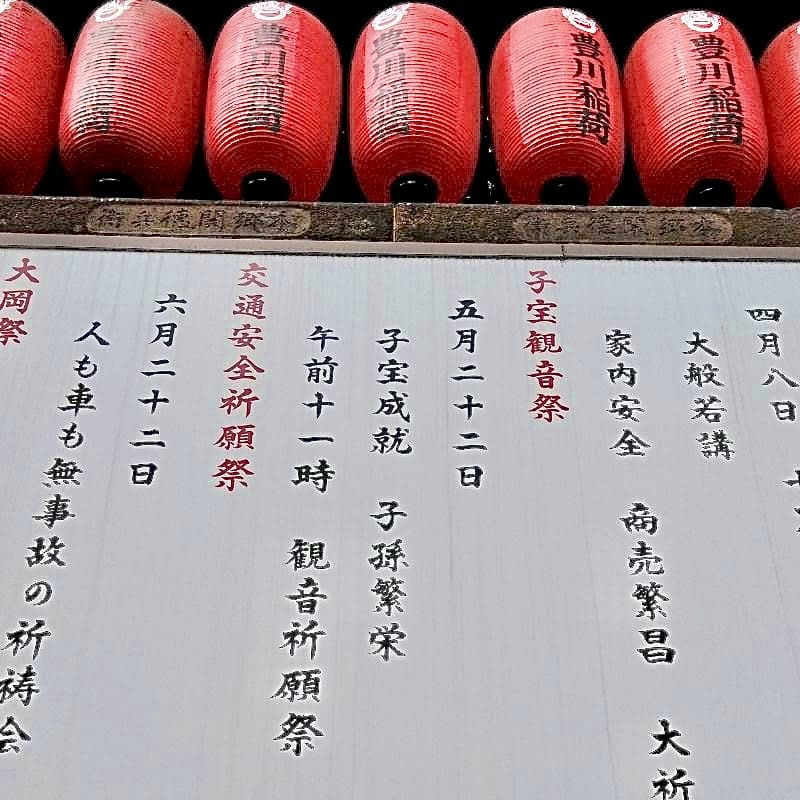 豊川稲荷
豊川稲荷
豊川稲荷
豊川稲荷
豊川稲荷
四月八日
大般若講
家内安全 商売繁昌 大祈
子宝観音祭
五月二十二日
子宝成就 子孫繁栄
午前十一時 観音祈願祭
交通安全祈願祭
六月二十二日
人も車も無事故の祈祷会
大岡祭